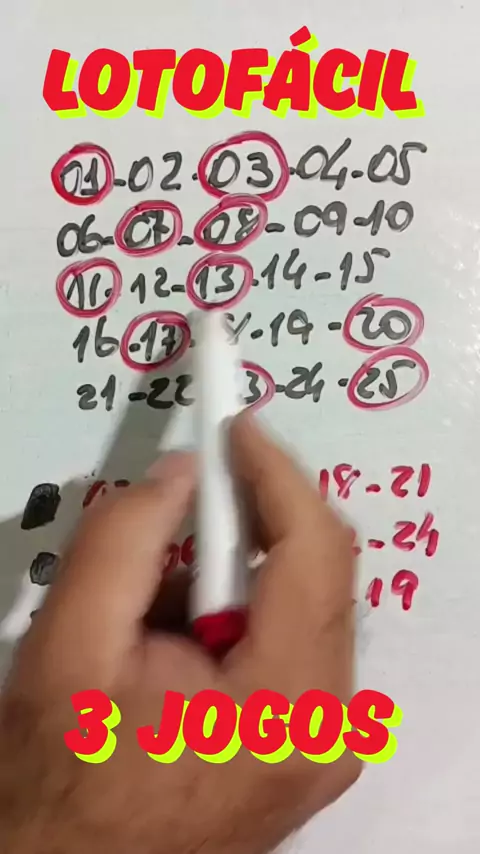 LOTOFÁCIL
01-02-03-04-05
06-07-08-09-10
11-12-13-14-15
16-17- -19-20
21-22- -24-25
18-21
-24
19
3 JOGOS